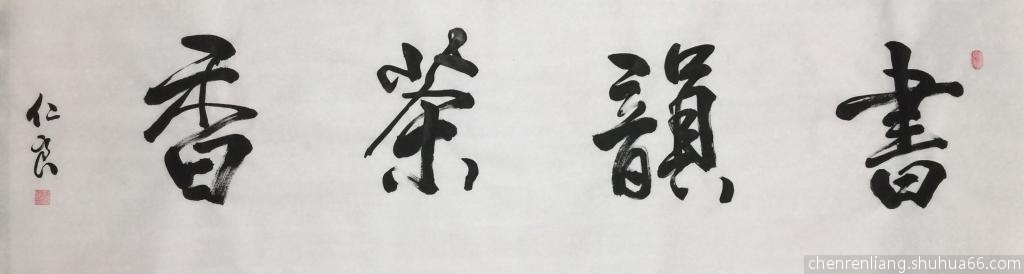 書韻茶香
仁良
chenrenliang.shuhua66.com